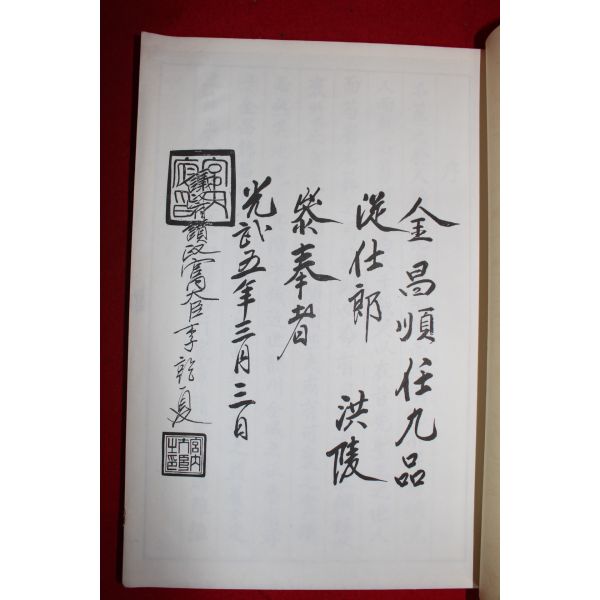 金昌順任九品
從仕郎 洪陵
叅奉者
光武五年三月三日
議政府贊政宮內大臣李乾夏
宮內府印
宮內大臣之印